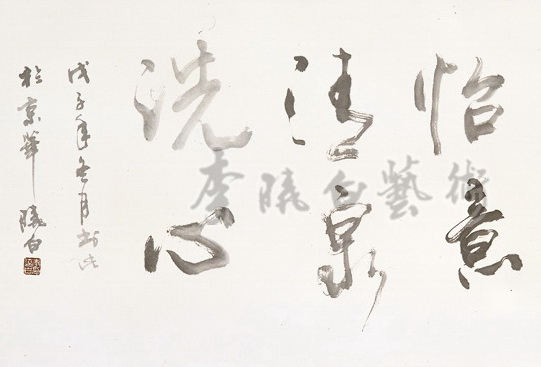 怡意
清泉
洗心
戊子年冬月书此
於京華曉白
李曉白藝術